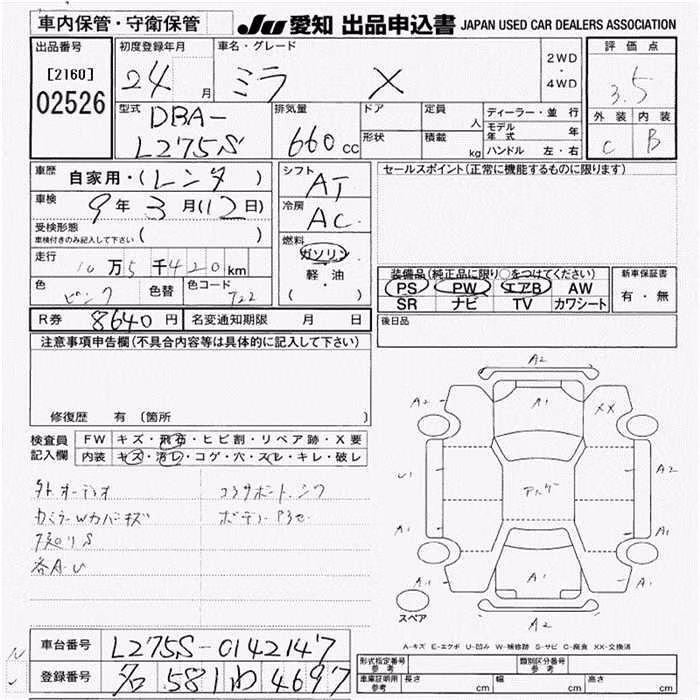 車内保管・守衛保管
JU 愛知 出品申込書 JAPAN USED CAR DEALERS ASSOCIATION
出品番号
[2160]
02526
初度登録年月
24 月
車名・グレード
ミラ X
2WD・4WD
評価点
3.5
外装 内装
C B
型式
DBA-
L275S
排気量
660 cc
ドア
形状
定員 人
積載 kg
ディーラー・並行
モデル年式 年
ハンドル 左・右
車歴
自家用・(レンタ)
車検
9年3月(12日)
受検形態
車検付きのみ記入して下さい ( )
走行
10万5千420km
色 ピンク 色替 色コード T22
シフト
AT
冷房
AC
燃料
ガソリン
軽・油
( )
セールスポイント(正常に機能するものに限ります)
装備品(純正品に限り○をつけてください)
PS PW エアB AW
SR ナビ TV カワシート
新車保証書
有・無
後日品
R券 8640円 名変通知期限 月 日
注意事項申告欄(不具合内容等は具体的に記入して下さい)
修復歴 有 (箇所
検査員記入欄
FW キズ・飛石・ヒビ割・リペア跡・X要
内装 キズ・汚レ・コゲ・穴・スレ・キレ・破レ
外オーディオ
各A・U
A2
A2 A1 XX
U1 A2
A1 A1
A1 A1 A1
A2
スペア
A-キズ E-エクボ U-凹み W-補修跡 S-サビ C-腐食 XX-交換済
車台番号 L275S-0142147
登録番号 名 581 わ 4697
形式指定番号 参考
類別区分番号 参考
車庫証明用 参考
長さ cm 幅 cm 高さ cm